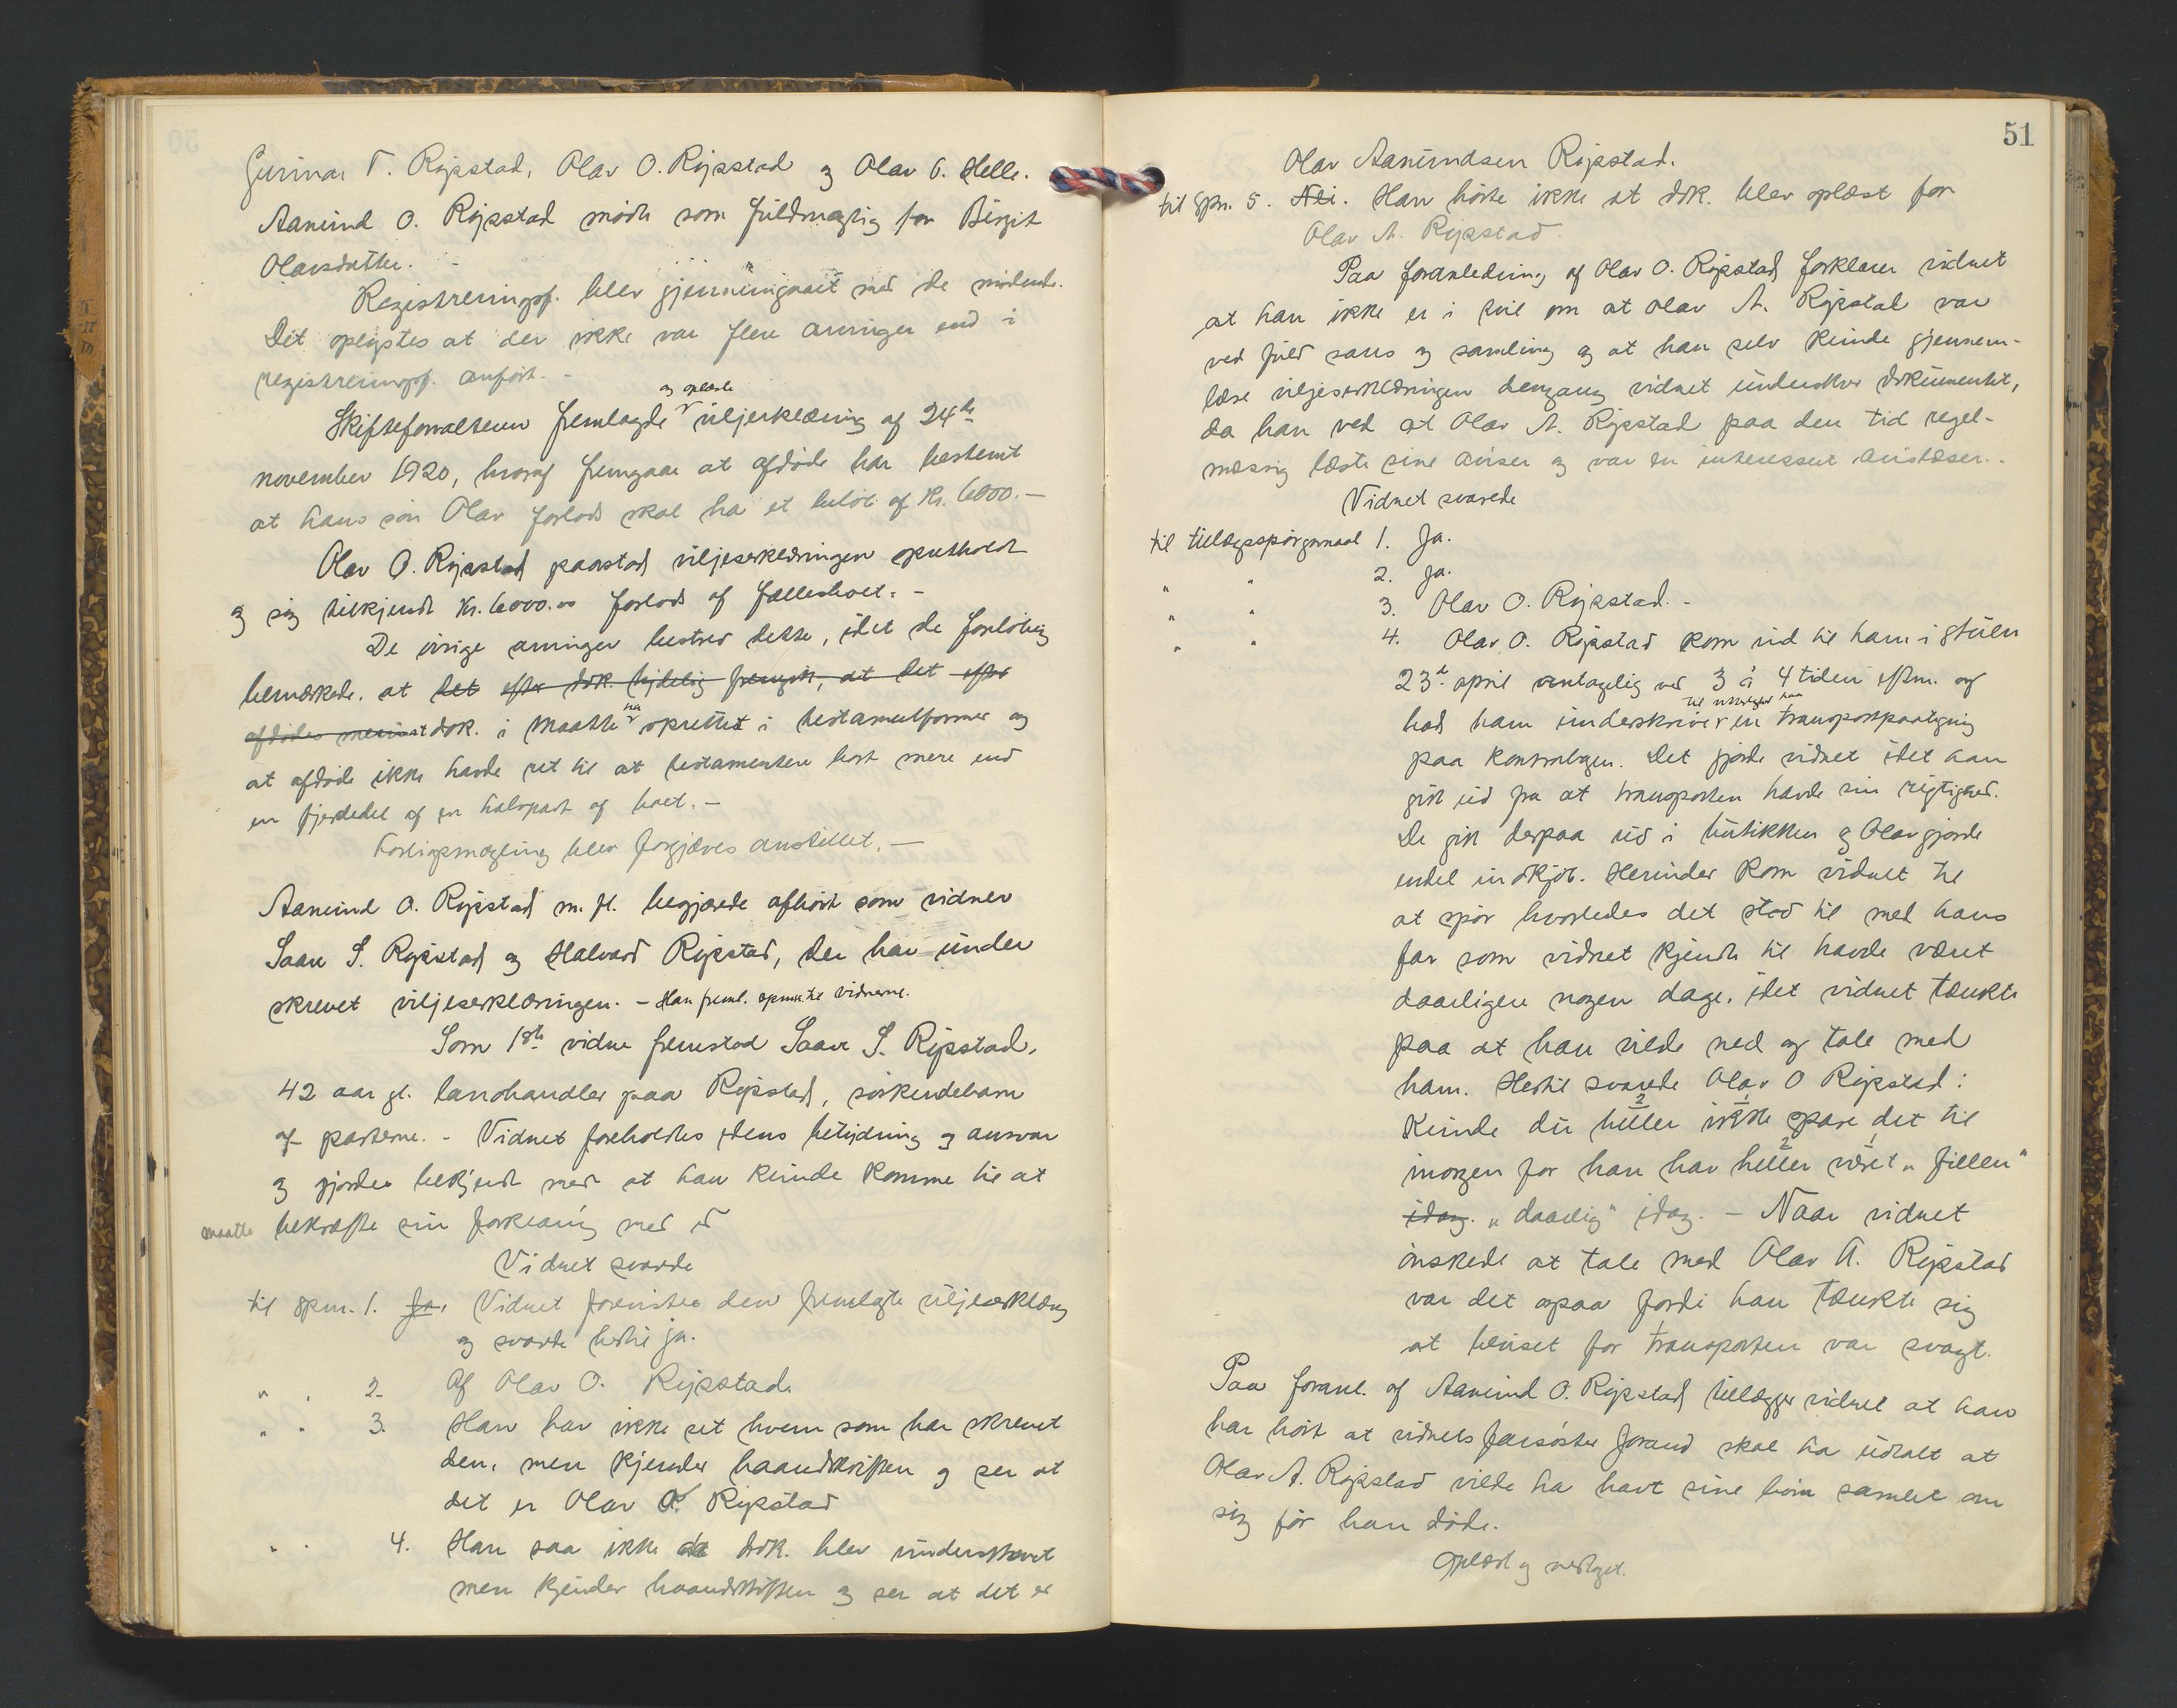 Gunnar T. Rysstad, Olav O. Rysstad og Olav G. Helle.
Aanund O. Rysstad mødte som fuldmægtig for Birgit
Olavsdatter. -
Registreringsf. blev gjennemgaaet med de mødende.
Det oplystes at der ikke var flere arvinger end i
registreringsf. anført. -
og oplæste
Skifteforvalteren fremlagde viljeerklæring af 24de
november 1920, hvoraf fremgaar at afdøde har bestemt
at hans søn Olav forlods skal ha et beløb af Kr. 6000.-
Olav O. Rysstad paastod viljeserklæringen opretholdt
og sig tilkjendt Kr. 6000.00 forlods af fællesboet. -
De øvrige arvinger bestred dette, idet de foreløbig
bemerkede, at det efter dok. tydelig fremgik, at det efter
afdødes mening at dok. i maatte ha oprettet i testamentformer og
at afdøde ikke havde ret til at testamentere bort mere end
en fjerdedel af en halvpart af boet. -
Forligsmægling blev forgjæves anstillet. -
Aanund O. Rysstad m. fl. begjærede afhørt som vidner
Saave S. Rysstad og Halvard Rysstad, der har under
skrevet viljeserklæringen. - Han freml. spmaal til vidnerne.
Som 1ste vidne fremstod Saave S. Rysstad,
42 aar gl. landhandler paa Rysstad, søskendebarn
af parterne. - Vidnet foreholdtes edens betydning og ansvar
og gjordes bekjendt med at han kunde komme til at
maatte bekræfte sin forklaring med ed
Vidnet svarede
til spm. 1. Ja. Vidnet forevistes den fremlagte viljeserklæring
og svarede hertil ja.
" " 2. Af Olav O. Rysstad.
" " 3. Han har ikke set hvem som har skrevet
den, men kjender haandskriften og ser at
det er Olav O. Rysstad
" " 4. Han saa ikke at dok. blev underskrevet
men kjender haandskriften og ser at det er
51
Olav Aanundsen Rysstad.
til spm. 5. Nei. Han hørte ikke at dok. blev oplæst for
Olav A. Rysstad.
Paa foranledning af Olav O. Rysstad forklarer vidnet
at han ikke er i tvil om at Olav A. Rysstad var
ved fuld sans og samling og at han selv kunde gjennem-
læse viljeserklæringen dengang vidnet underskrev dokumentet,
da han ved at Olav A. Rysstad paa den tid regel-
mæssig læste sine aviser og var en interessert avislæser. -
Vidnet svarede
til tillægsspørgsmaal 1. Ja.
" " 2. Ja.
" " 3. Olav O. Rysstad. -
" " 4. Olav O. Rysstad kom ind til ham i stuen
23de april antagelig ved 3 à 4 tiden eftm. og
bad ham underskrive en transportpaategning
paa kontrabogen. Det gjorde vidnet idet han
gik ud fra at transporten havde sin rigtighed.
De gik derpaa ud i butikken og Olav gjorde
endel indkjøb. Herunder kom vidnet til
at spør hvorledes det stod til med hans
far som vidnet kjendte til havde været
daarligere nogen dage, idet vidnet tænkte
paa at han vilde ned og tale med
ham. Hertil svarede Olav O Rysstad:
Kunde du heller ikke spare det til
imorgen for han har heller været "fillen"
idag. "daarlig" idag. - Naar vidnet
ønskede at tale med Olav A. Rysstad
var det ogsaa fordi han tænkte sig
at beviset for transporten var svagt.
Paa foranl. af Aanund O. Rysstad tillægger vidnet at han
har hørt at vidnets farsøster Jorand skal ha udtalt at
Olav A. Rysstad vilde ha havt sine børn samlet om
sig før han døde.
Oplæst og vedtaget.